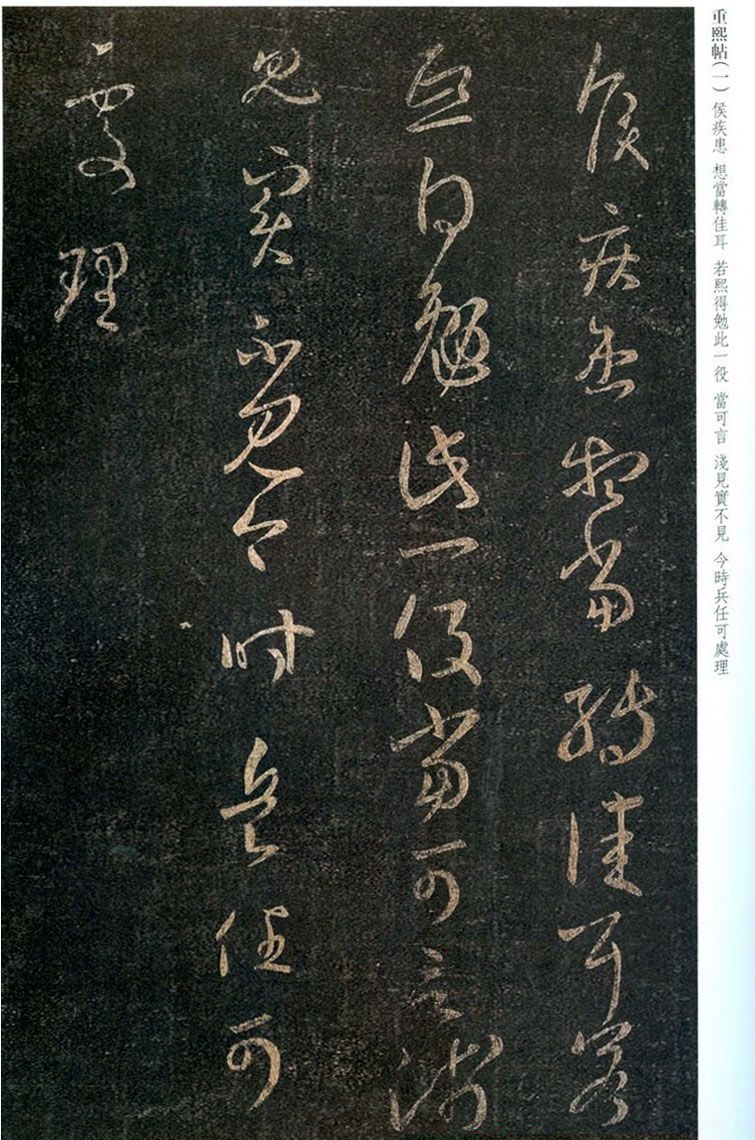 重熙帖（一） 侯疾患 想當轉佳耳 若熙得勉此一役 當可言 淺見實不見 今時兵任可處理
侯疾患想當轉佳耳若
熙得勉此一役當可言淺
見實不見今時兵任可
處理